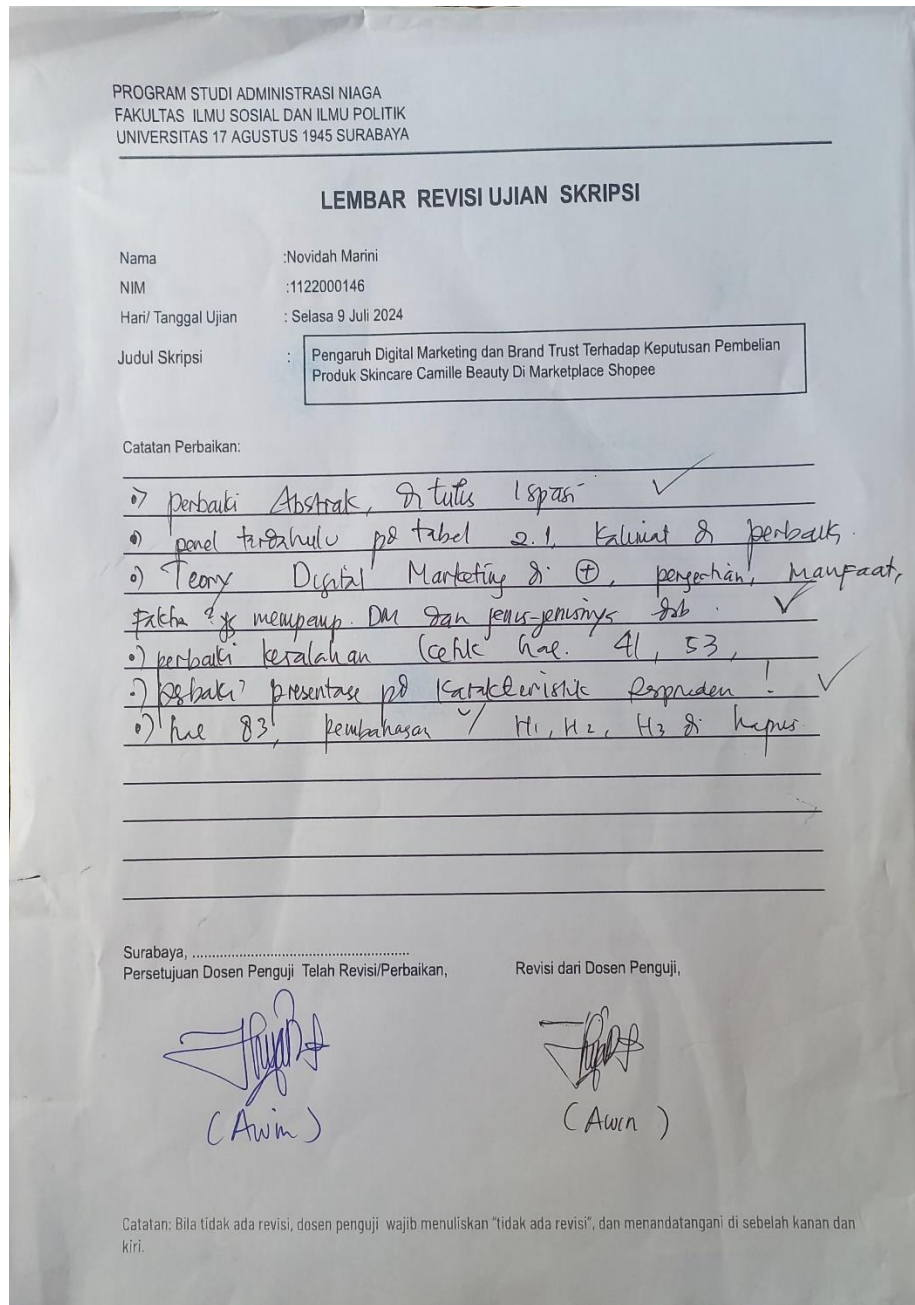 PROGRAM STUDI ADMINISTRASI NIAGA
FAKULTAS ILMU SOSIAL DAN ILMU POLITIK
UNIVERSITAS 17 AGUSTUS 1945 SURABAYA
LEMBAR REVISI UJIAN SKRIPSI
Nama :Novidah Marini
NIM :1122000146
Hari/ Tanggal Ujian : Selasa 9 Juli 2024
Judul Skripsi : Pengaruh Digital Marketing dan Brand Trust Terhadap Keputusan Pembelian
Produk Skincare Camille Beauty Di Marketplace Shopee
Catatan Perbaikan:
perbaiki Abstrak, di tulis 1 spasi
penel terdahulu pd tabel 2.1, Kalimat di perbaiki.
Teory Digital Marketing di +, pengertian, Manfaat,
mempeng. DM dan jenis-jenisnya
perbaiki kesalahan hal. 41, 53,
presentase pd Karakteristik Responden !
hal 83, pembahasan H1, H2, H3 di hapus
Surabaya, ......................................................
Persetujuan Dosen Penguji Telah Revisi/Perbaikan, Revisi dari Dosen Penguji,
(Awin) (Awin)
Catatan: Bila tidak ada revisi, dosen penguji wajib menuliskan "tidak ada revisi", dan menandatangani di sebelah kanan dan
kiri.